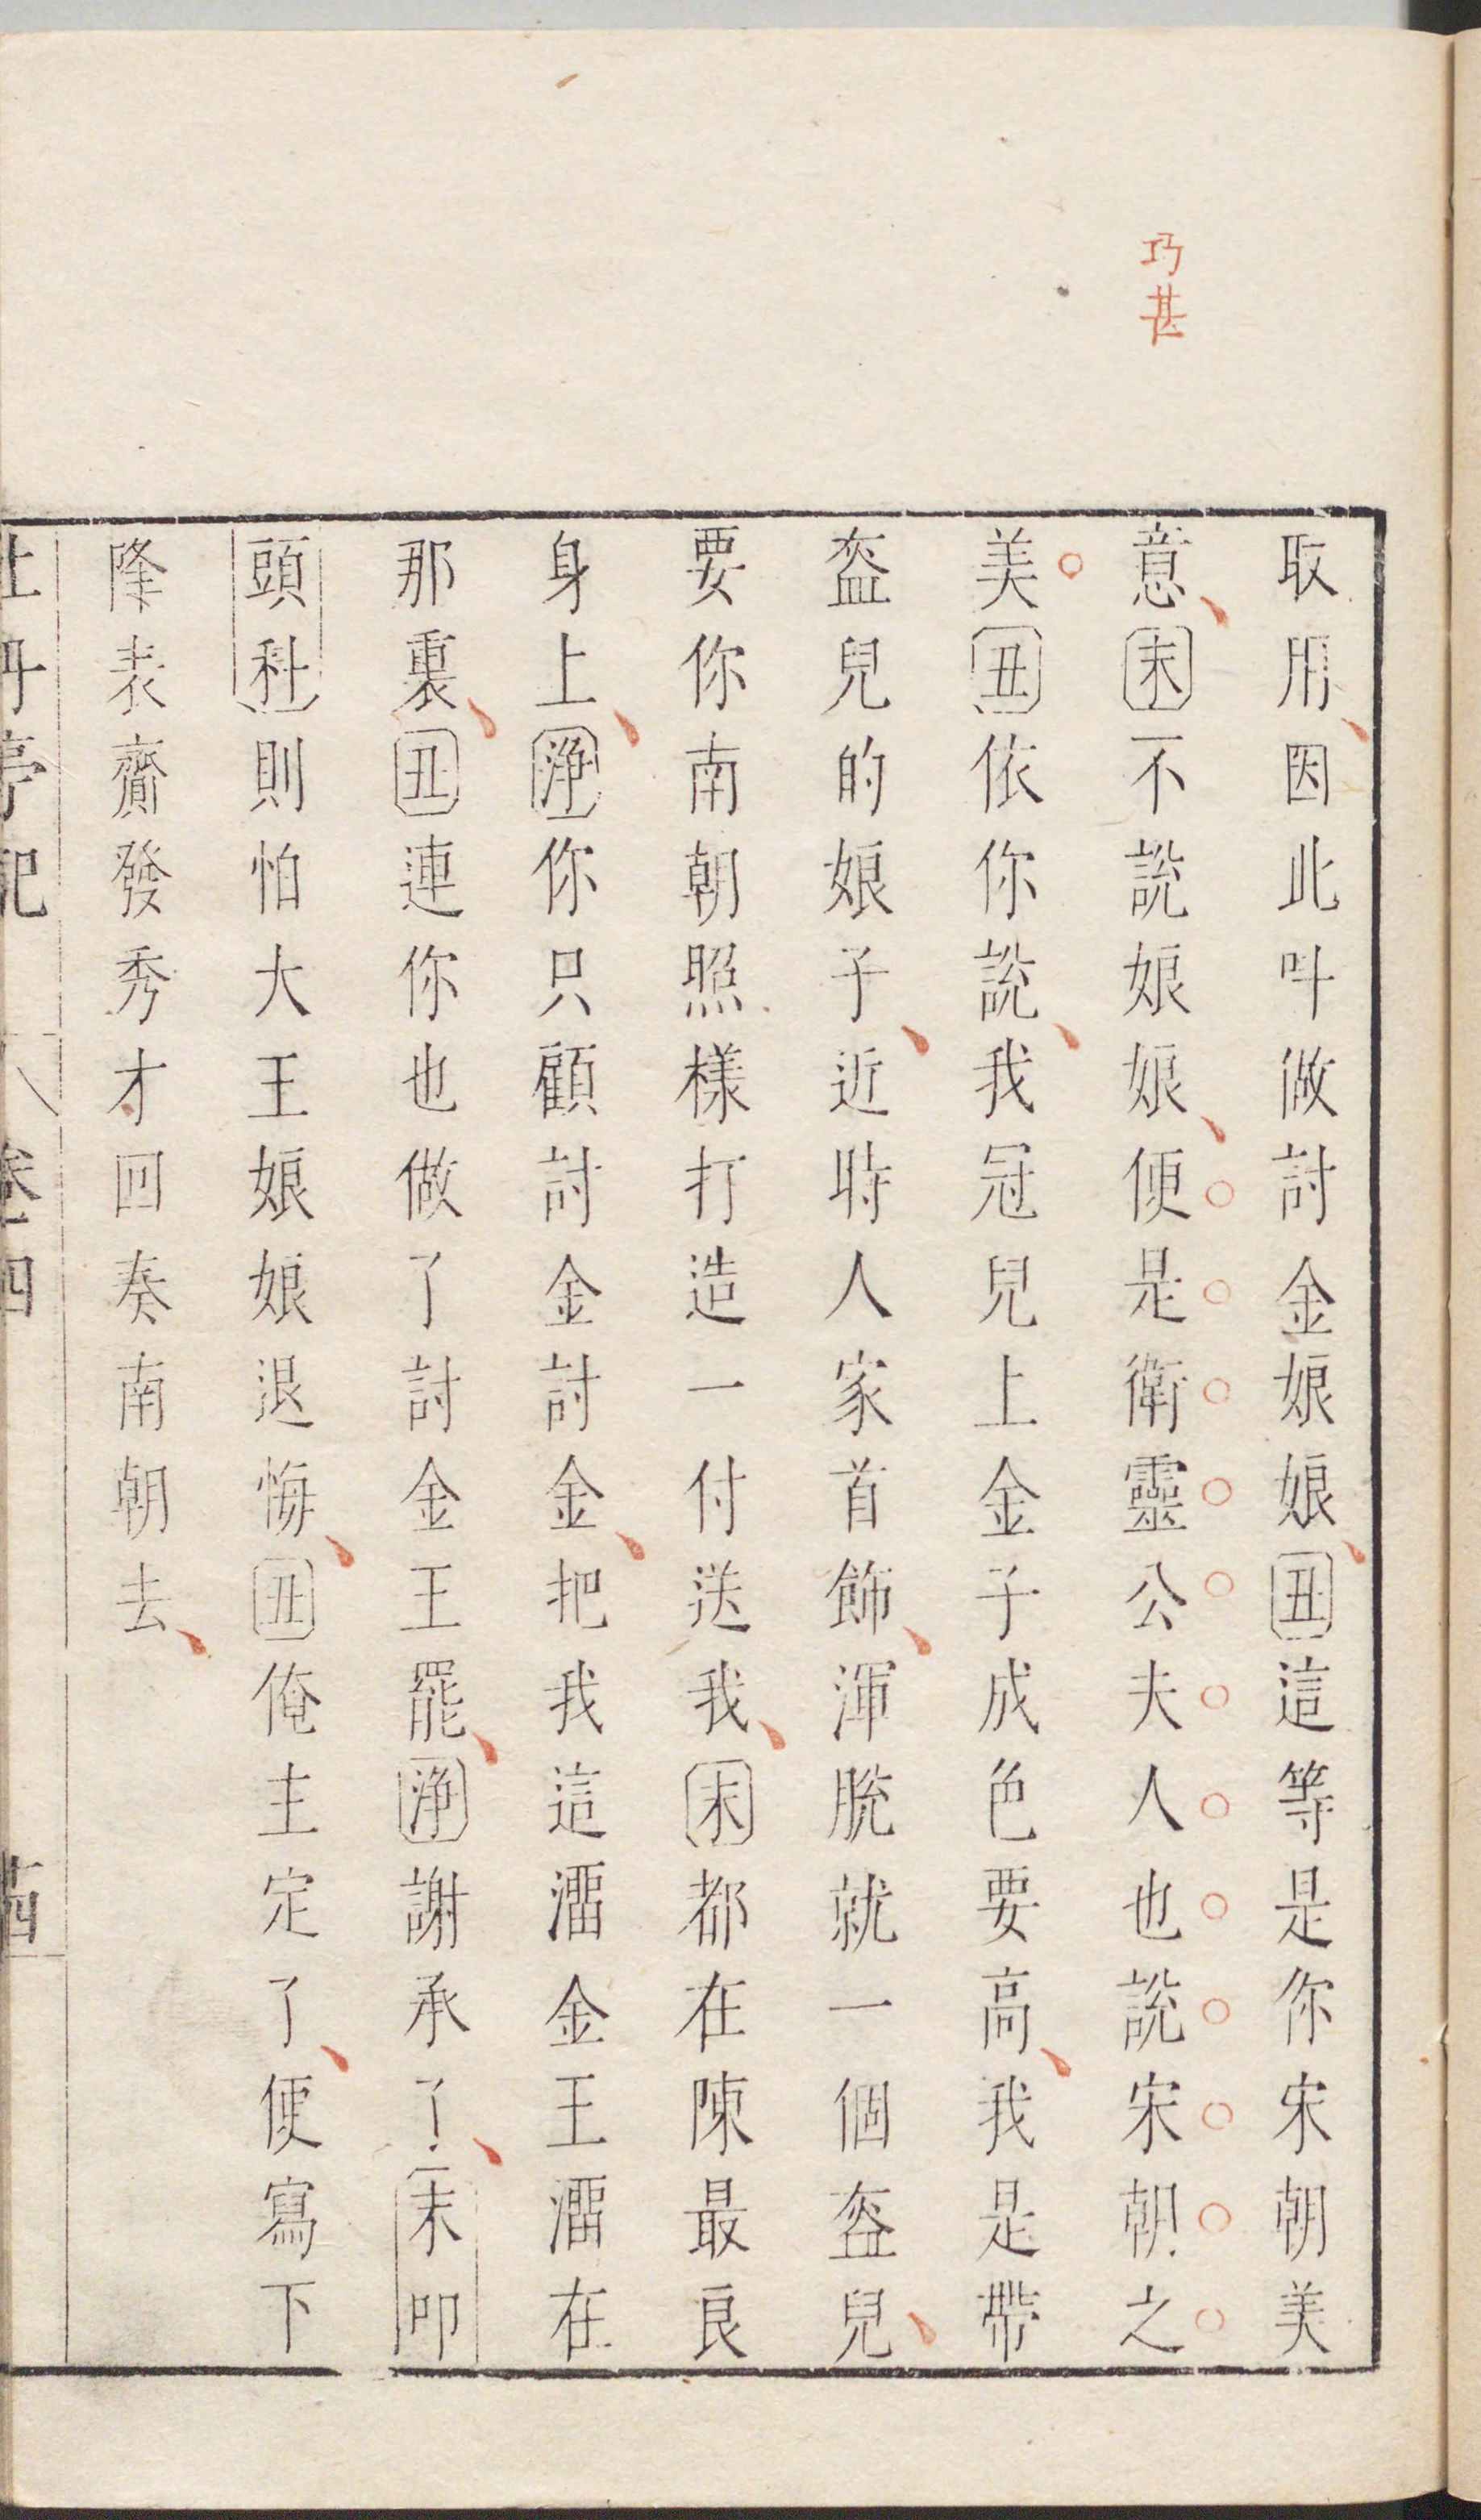 巧甚
取用因此叫做討金娘娘丑這等是你宋朝美
意末不說娘娘便是衛靈公夫人也說宋朝之
美丑依你說我冠兒上金子成色要高我是帶
盔兒的娘子近時人家首飾渾脫就一個盔兒
要你南朝照樣打造一付送我末都在陳最良
身上淨你只顧討金討金把我這溜金王溜在
那裏丑連你也做了討金王罷淨謝承了末叩
頭科則怕大王娘娘退悔丑俺主定了便寫下
降表齎發秀才回奏南朝去
牡丹亭記 卷四